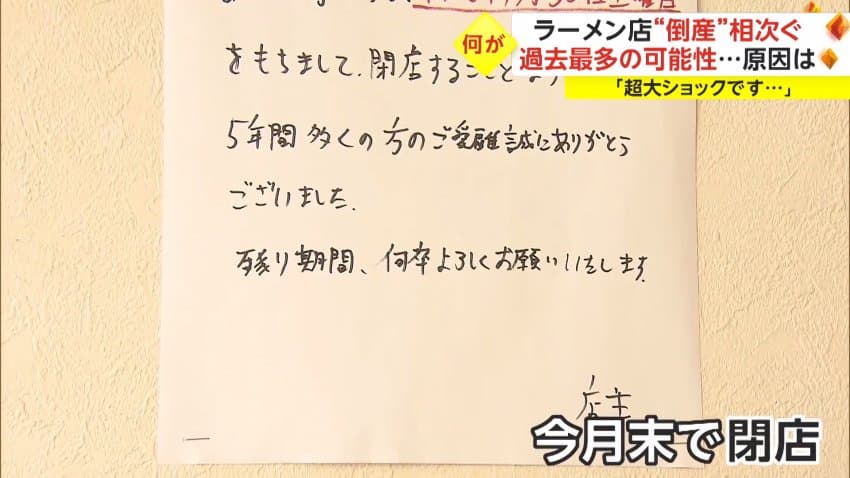 何が
ラーメン店“倒産”相次ぐ
過去最多の可能性…原因は
「超大ショックです…」
をもちまして、閉店すること
5年間 多くの方のご愛顧誠にありがとう
ございました.
残り期間、何卒よろしくお願いいたします.
店主
今月末で閉店